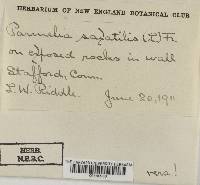 HERBARIUM OF NEW ENGLAND BOTANICAL CLUB
Parmelia saxatilis (L.) Fr.
on exposed rocks in wall
Stafford, Conn.
L.W. Riddle. June 20, 1911
HERB.
N.E.B.C.
vera!